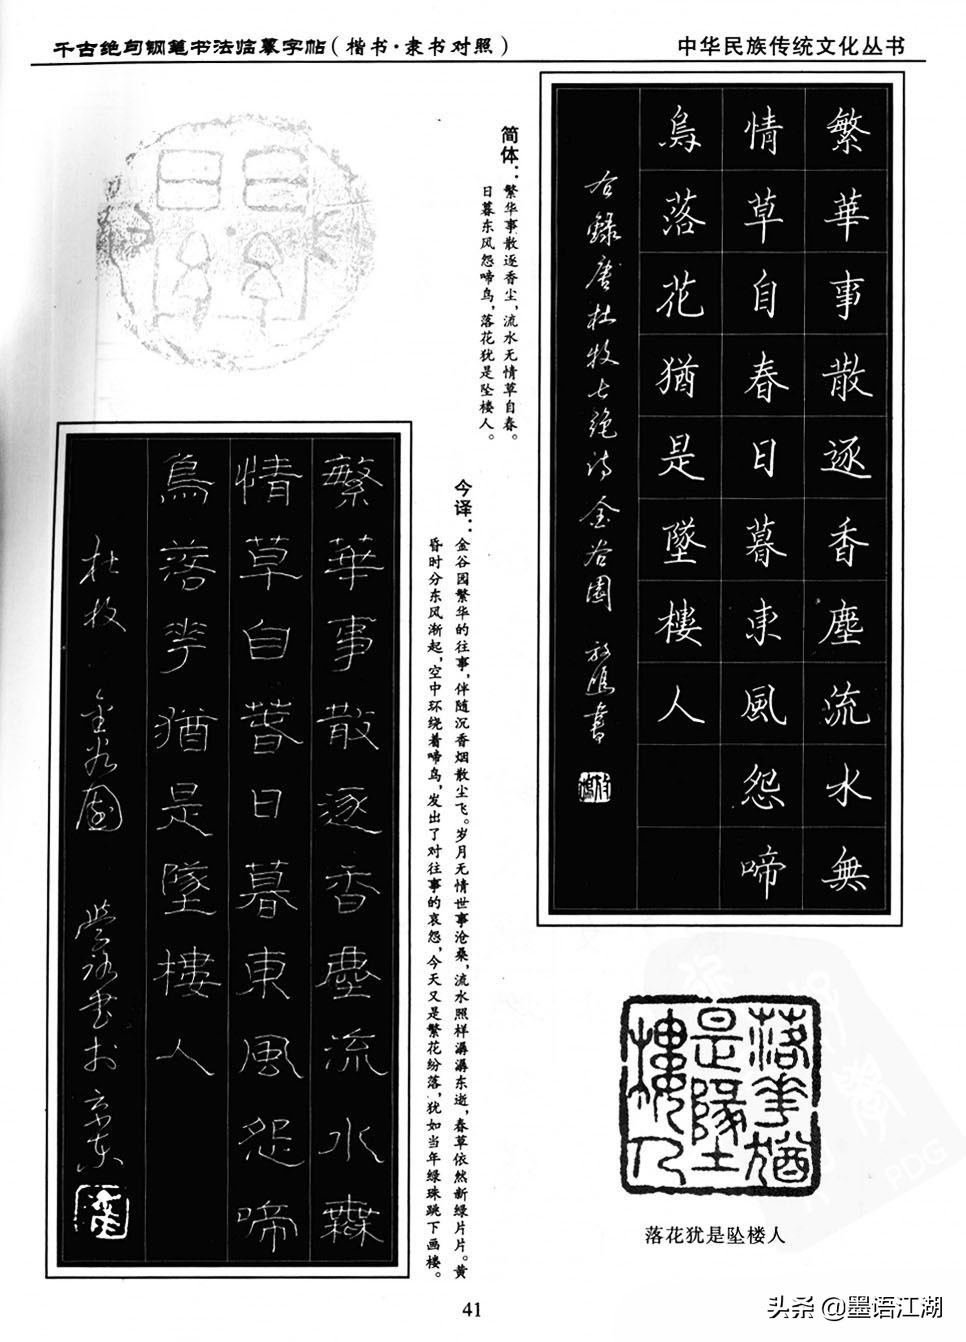 千古绝句钢笔书法临摹字帖(楷书·隶书对照)
中华民族传统文化丛书
繁華事散逐香塵流水無
情草自春日暮東風怨啼
鳥落花猶是墜樓人
右錄唐杜牧七絕詩金谷園
書
简体:繁华事散逐香尘,流水无情草自春。
日暮东风怨啼鸟,落花犹是坠楼人。
今译:金谷园繁华的往事,伴随沉香烟散尘飞。岁月无情世事沧桑,流水照样潺潺东逝,春草依然新绿片片。黄
昏时分东风渐起,空中环绕着啼鸟,发出了对往事的哀怨,今天又是繁花纷落,犹如当年绿珠跳下画楼。
繁華事散逐香塵流水無
情草自春日暮東風怨啼
鳥落花猶是墜樓人
杜牧 金谷園
書於京東
落花猶
是墜
樓人
落花犹是坠楼人
PDG
41
头条 @墨语江湖